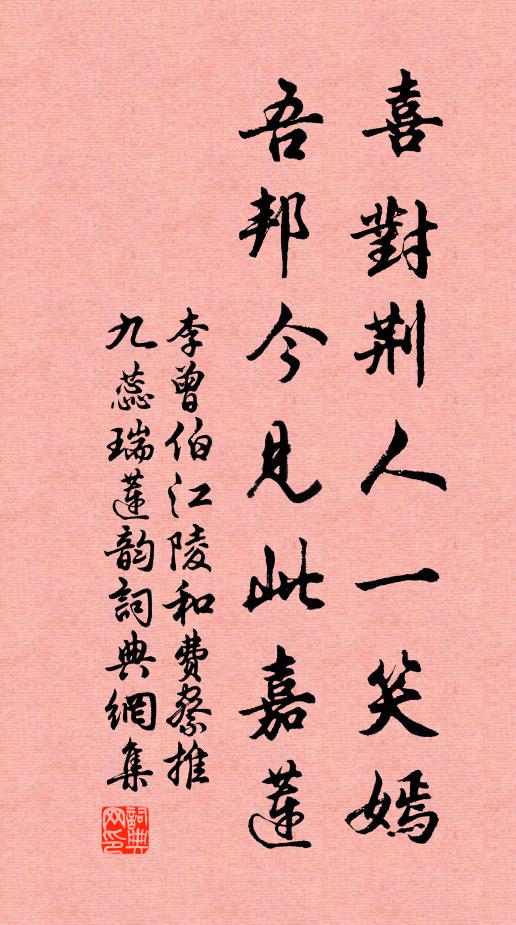 喜對荆人一笑嫣
吾邦今見此嘉蓮
李曾伯江陵和費察推
九蕊瑞蓮韵詞典網集
詞典
网印